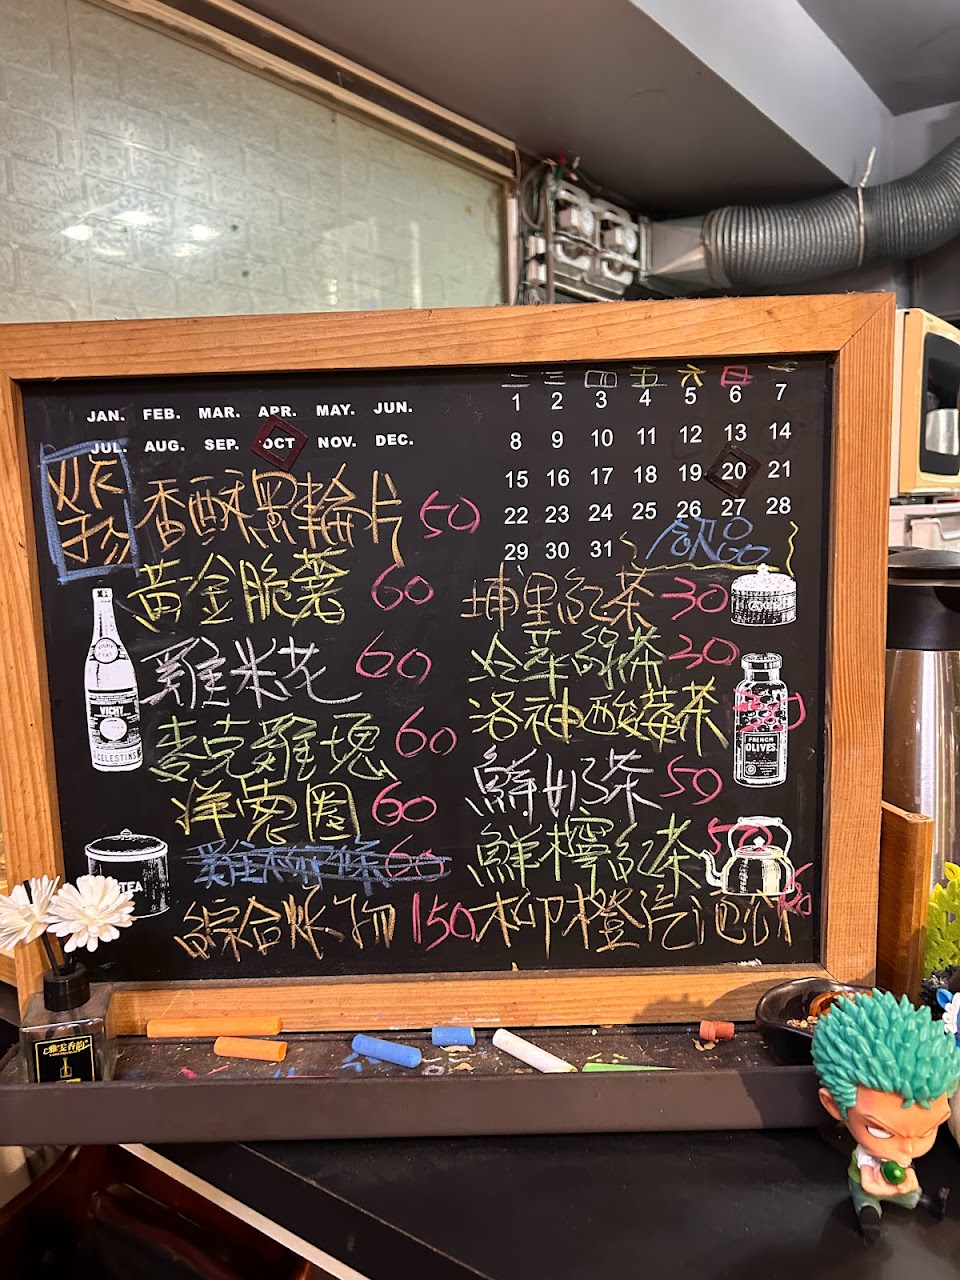 JAN. FEB. MAR. APR. MAY. JUN.
JUL. AUG. SEP. OCT NOV. DEC.
二 三 四 五 六 日 一
1 2 3 4 5 6 7
8 9 10 11 12 13 14
15 16 17 18 19 20 21
22 23 24 25 26 27 28
29 30 31
炸物
香酥黑輪片 50
黃金脆薯 60
雞米花 60
麥克雞塊 60
洋蔥圈 60
雞柳條 60
綜合炸物 150
飲品
埔里紅茶 30
冷萃綠茶 30
洛神酸莓茶
鮮奶茶 50
鮮檸紅茶 50
柳橙汽泡飲
VICHY
CELESTINS
TEA
FRENCH
OLIVES.